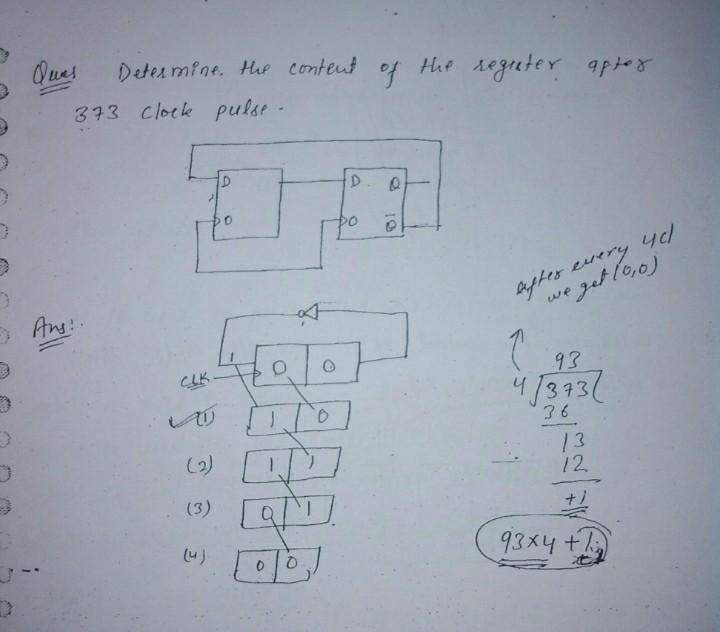 Ques Determine. the content of the register after
373 clock pulse.
D
D Q
0
0 Q̅
after every 4cl
we get (0,0)
Ans:
1
CLK 0 0
(1) 1 0
(2) 1 1
(3) 0 1
(4) 0 0
93
4 373
36
13
12
+1
93x4 + 1